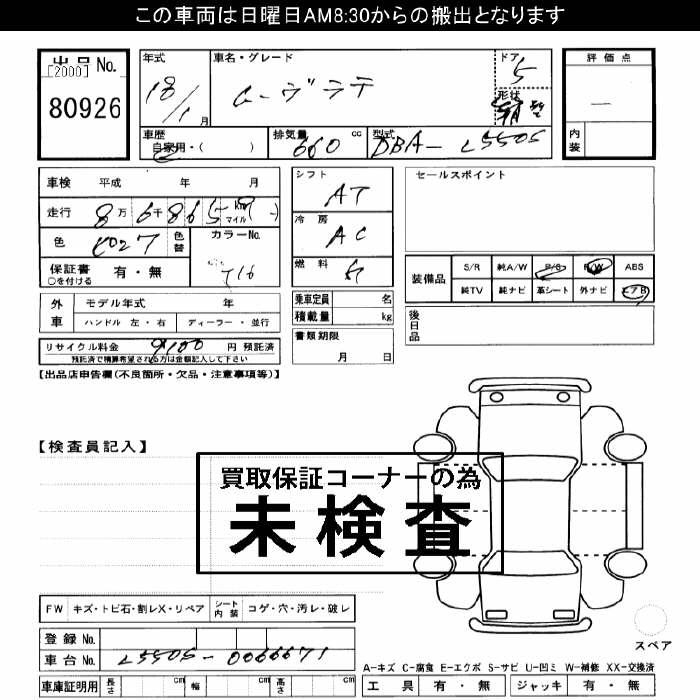 この車両は日曜日AM8:30からの搬出となります
出品No. [2000] 80926
年式 18/1月
車名・グレード ムーヴラテ
ドア 5
形状
評価点 —
内装
車歴 自家用・( )
排気量 660 cc
型式 DBA- L550S
車検 平成 年 月
走行 8万6千865 km マイル
色
色替
カラーNo. T16
保証書 有・無
○を付ける
シフト AT
冷房 AC
燃料 G
乗車定員 名
積載量 kg
書類期限 月 日
セールスポイント
装備品 S/R 純A/W P/S P/W ABS
純TV 純ナビ 革シート 外ナビ エアB
後日品
外車 モデル年式 年
ハンドル 左・右 ディーラー・並行
リサイクル料金 9100 円 預託済
預託済で精算希望される方は金額記入して下さい
【出品店申告欄(不良箇所・欠品・注意事項等)】
【検査員記入】
買取保証コーナーの為
未検査
FW キズ・トビ石・割レX・リペア シート内装 コゲ・穴・汚レ・破レ
登録No.
車台No. L550S-0066671
車庫証明用 長さ cm 幅 cm 高さ cm
スペア
A-キズ C-腐食 E-エクボ S-サビ U-凹ミ W-補修 XX-交換済
工具 有・無 ジャッキ 有・無